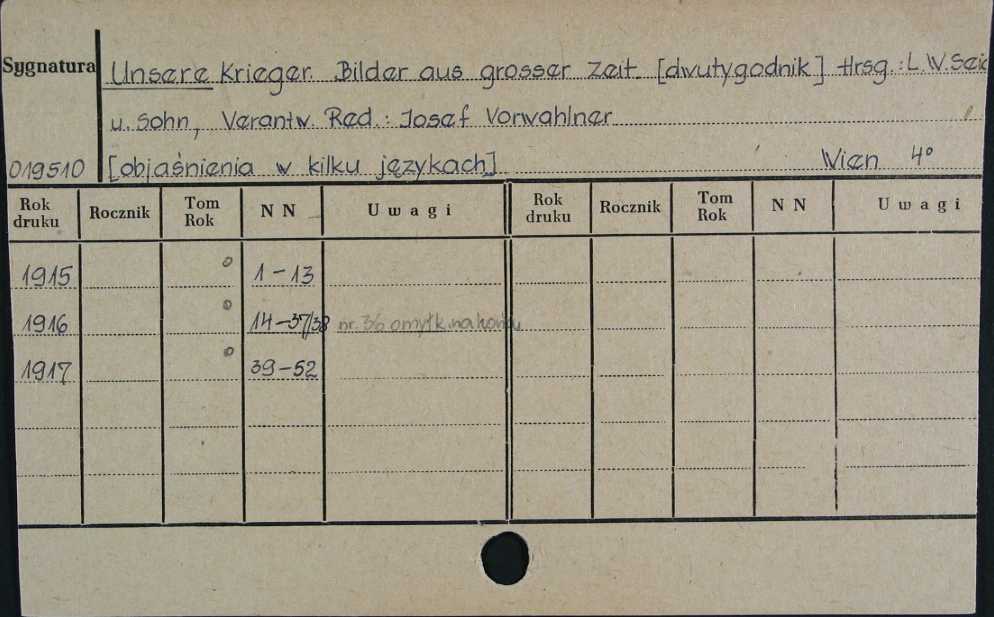 Sygnatura Unsere Krieger. Bilder aus grosser Zeit. [dwutygodnik] Hrsg.: L.W. Seid
u. Sohn, Verantw. Red.: Josef Vorwahlner
019510 [objaśnienia w kilku językach] Wien 4°
Rok druku Rocznik Tom Rok N N Uwagi Rok druku Rocznik Tom Rok N N Uwagi
1915 ° 1-13
1916 ° 14-37/38 nr. omyłk. na końcu
1917 ° 39-52